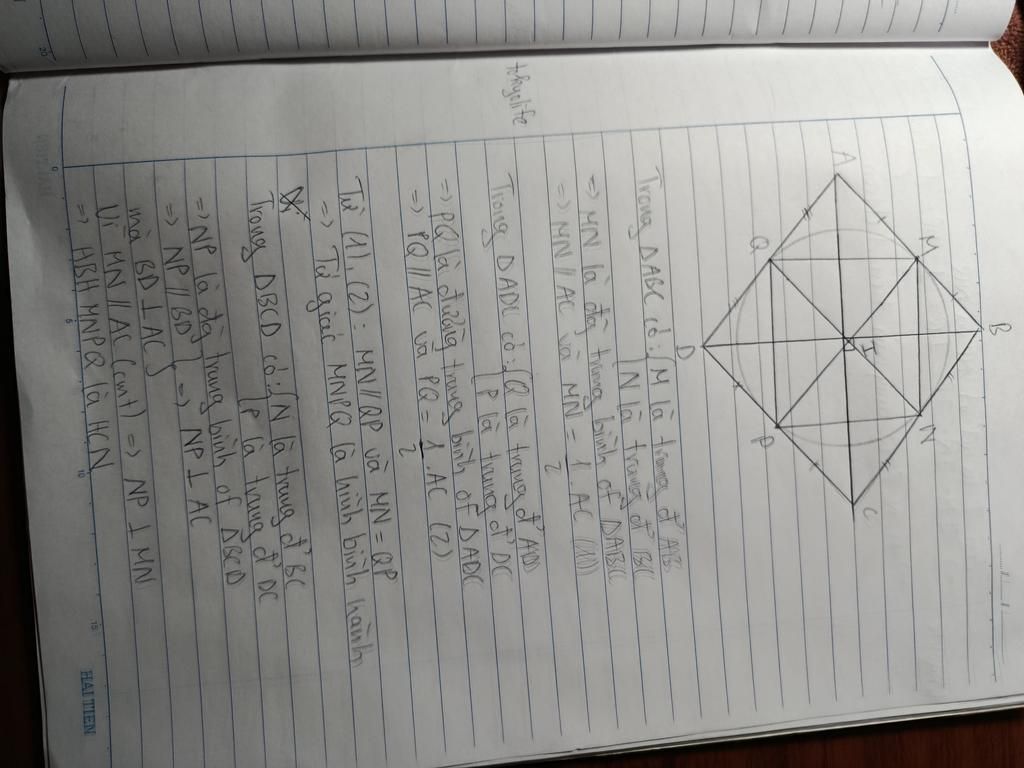 B
A
M
N
I
Q
P
C
D
Trong ΔABC có: { M là trung đ' AB
N là trung đ' BC
=> MN là đg trung bình of ΔABC
=> MN // AC và MN = 1/2 . AC (1)
Trong ΔADC có: { Q là trung đ' AD
P là trung đ' DC
=> PQ là đường trung bình of ΔADC
=> PQ // AC và PQ = 1/2 . AC (2)
Từ (1), (2): MN // QP và MN = QP
=> Tứ giác MNPQ là hình bình hành
Trong ΔBCD có: { N là trung đ' BC
P là trung đ' DC
=> NP là đg trung bình of ΔBCD
=> NP // BD } => NP ⊥ AC
mà BD ⊥ AC
Vì MN // AC (cmt) => NP ⊥ MN
=> HBH MNPQ là HCN
0
5
10
15
20
HẢI TIẾN